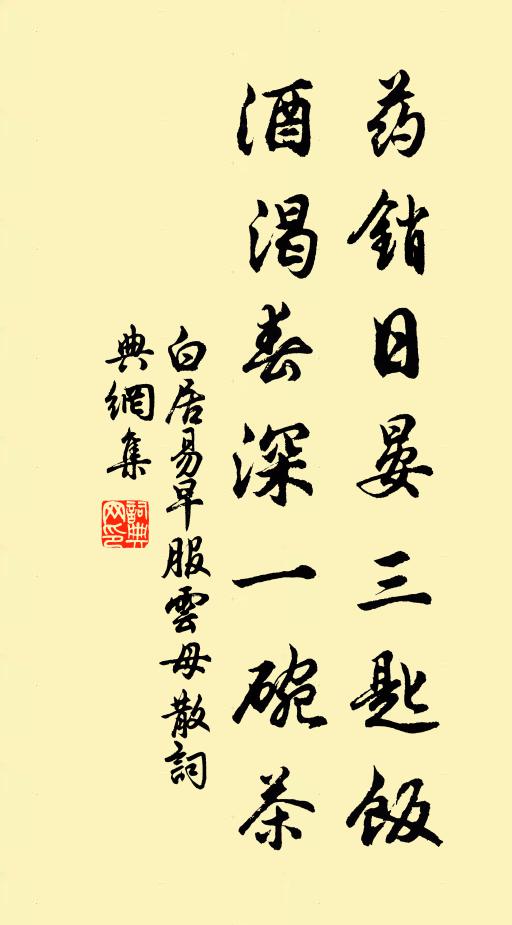 药銷日晏三匙飯
酒渴春深一碗茶
白居易早服雲母散詞
典網集
詞典网印